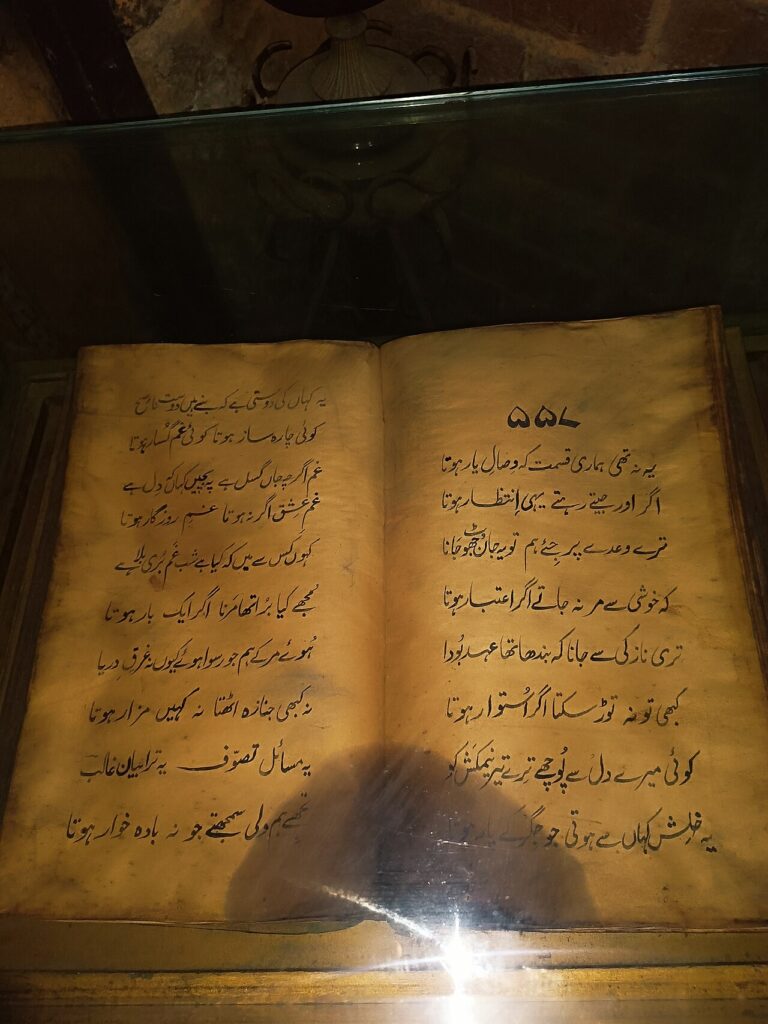 ۵۵۷
یہ نہ تھی ہماری قسمت کہ وصالِ یار ہوتا
اگر اور جیتے رہتے یہی اِنتظار ہوتا
ترے وعدے پر جئے ہم تو یہ جان جھوٹ جانا
کہ خوشی سے مر نہ جاتے اگر اعتبار ہوتا
تری نازکی سے جانا کہ بندھا تھا عہد بُودا
کبھی تو نہ توڑ سکتا اگر اُستوار ہوتا
کوئی میرے دل سے پُوچھے ترے تیرِ نیمکش کو
یہ خلش کہاں سے ہوتی جو جگر کے پار ہوتا
یہ کہاں کی دوستی ہے کہ بنے ہیں دوست ناصح
کوئی چارہ ساز ہوتا کوئی غم گسار ہوتا
غم اگرچہ جاں گسل ہے پہ بچیں کہاں کہ دل ہے
غمِ عشق اگر نہ ہوتا غمِ روزگار ہوتا
کہوں کس سے میں کہ کیا ہے شبِ غم بُری بلا ہے
مُجھے کیا بُرا تھا مرنا اگر ایک بار ہوتا
ہُوئے مر کے ہم جو رسوا ہوئے کیوں نہ غرقِ دریا
نہ کبھی جنازہ اٹھتا نہ کہیں مزار ہوتا
یہ مسائل تصوّف یہ ترا بیان غالب
تجھے ہم ولی سمجھتے جو نہ بادہ خوار ہوتا